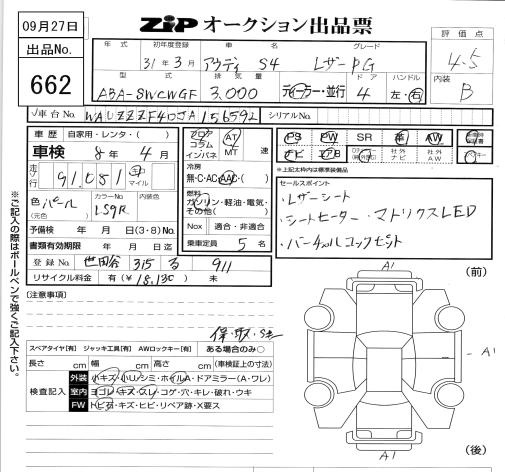 09月27日
ZIP オークション出品票
出品No.
662
評価点
4.5
内装
B
年式 初年度登録 車名 グレード
31年 3月 アウディ S4 レザーPG
型式 排気量 ドア ハンドル
ABA-8WCWGF 3,000 ディーラー・並行 4 左・右
車台No. WAUZZZF40JA156592 シリアルNo.
車歴 自家用・レンタ・( )
車検 8年 4月
走行 91,081 キロ マイル
色 パール
(元色)
カラーNo.
LS9R
内装色
予備検 年 月 日(3・8)No.
書類有効期限 年 月 日迄
登録No. 世田谷 315 る 911
リサイクル料金 有(¥18,130) 未
フロア コラム インパネ
AT MT 速
冷房
無・C・AC・AAC・( )
燃料
ガソリン・軽油・電気・その他( )
Nox 適合・非適合
乗車定員 5 名
PS PW SR 革 AW
ナビ エアB 社外ナビ 社外AW
※上記太枠内は標準装備品
セールスポイント
・レザーシート
・シートヒーター ・マトリクスLED
・バーチャルコックピット
[注意事項]
保・取・Sキー
スペアタイヤ[有] ジャッキ工具[有] AWロックキー[有] ある場合のみ○
長さ cm 幅 cm 高さ cm (車検証上の寸法)
検査記入
外装 小キズ・小凹/シミ・ホイルA・ドアミラー(A・ワレ)
室内 ヨゴレ・キズ・スレ・コゲ・穴・キレ・破れ・ウキ
FW トビ石・キズ・ヒビ・リペア跡・X要ス
※ご記入の際はボールペンで強くご記入下さい。
A1
(前)
A1
A1
(後)